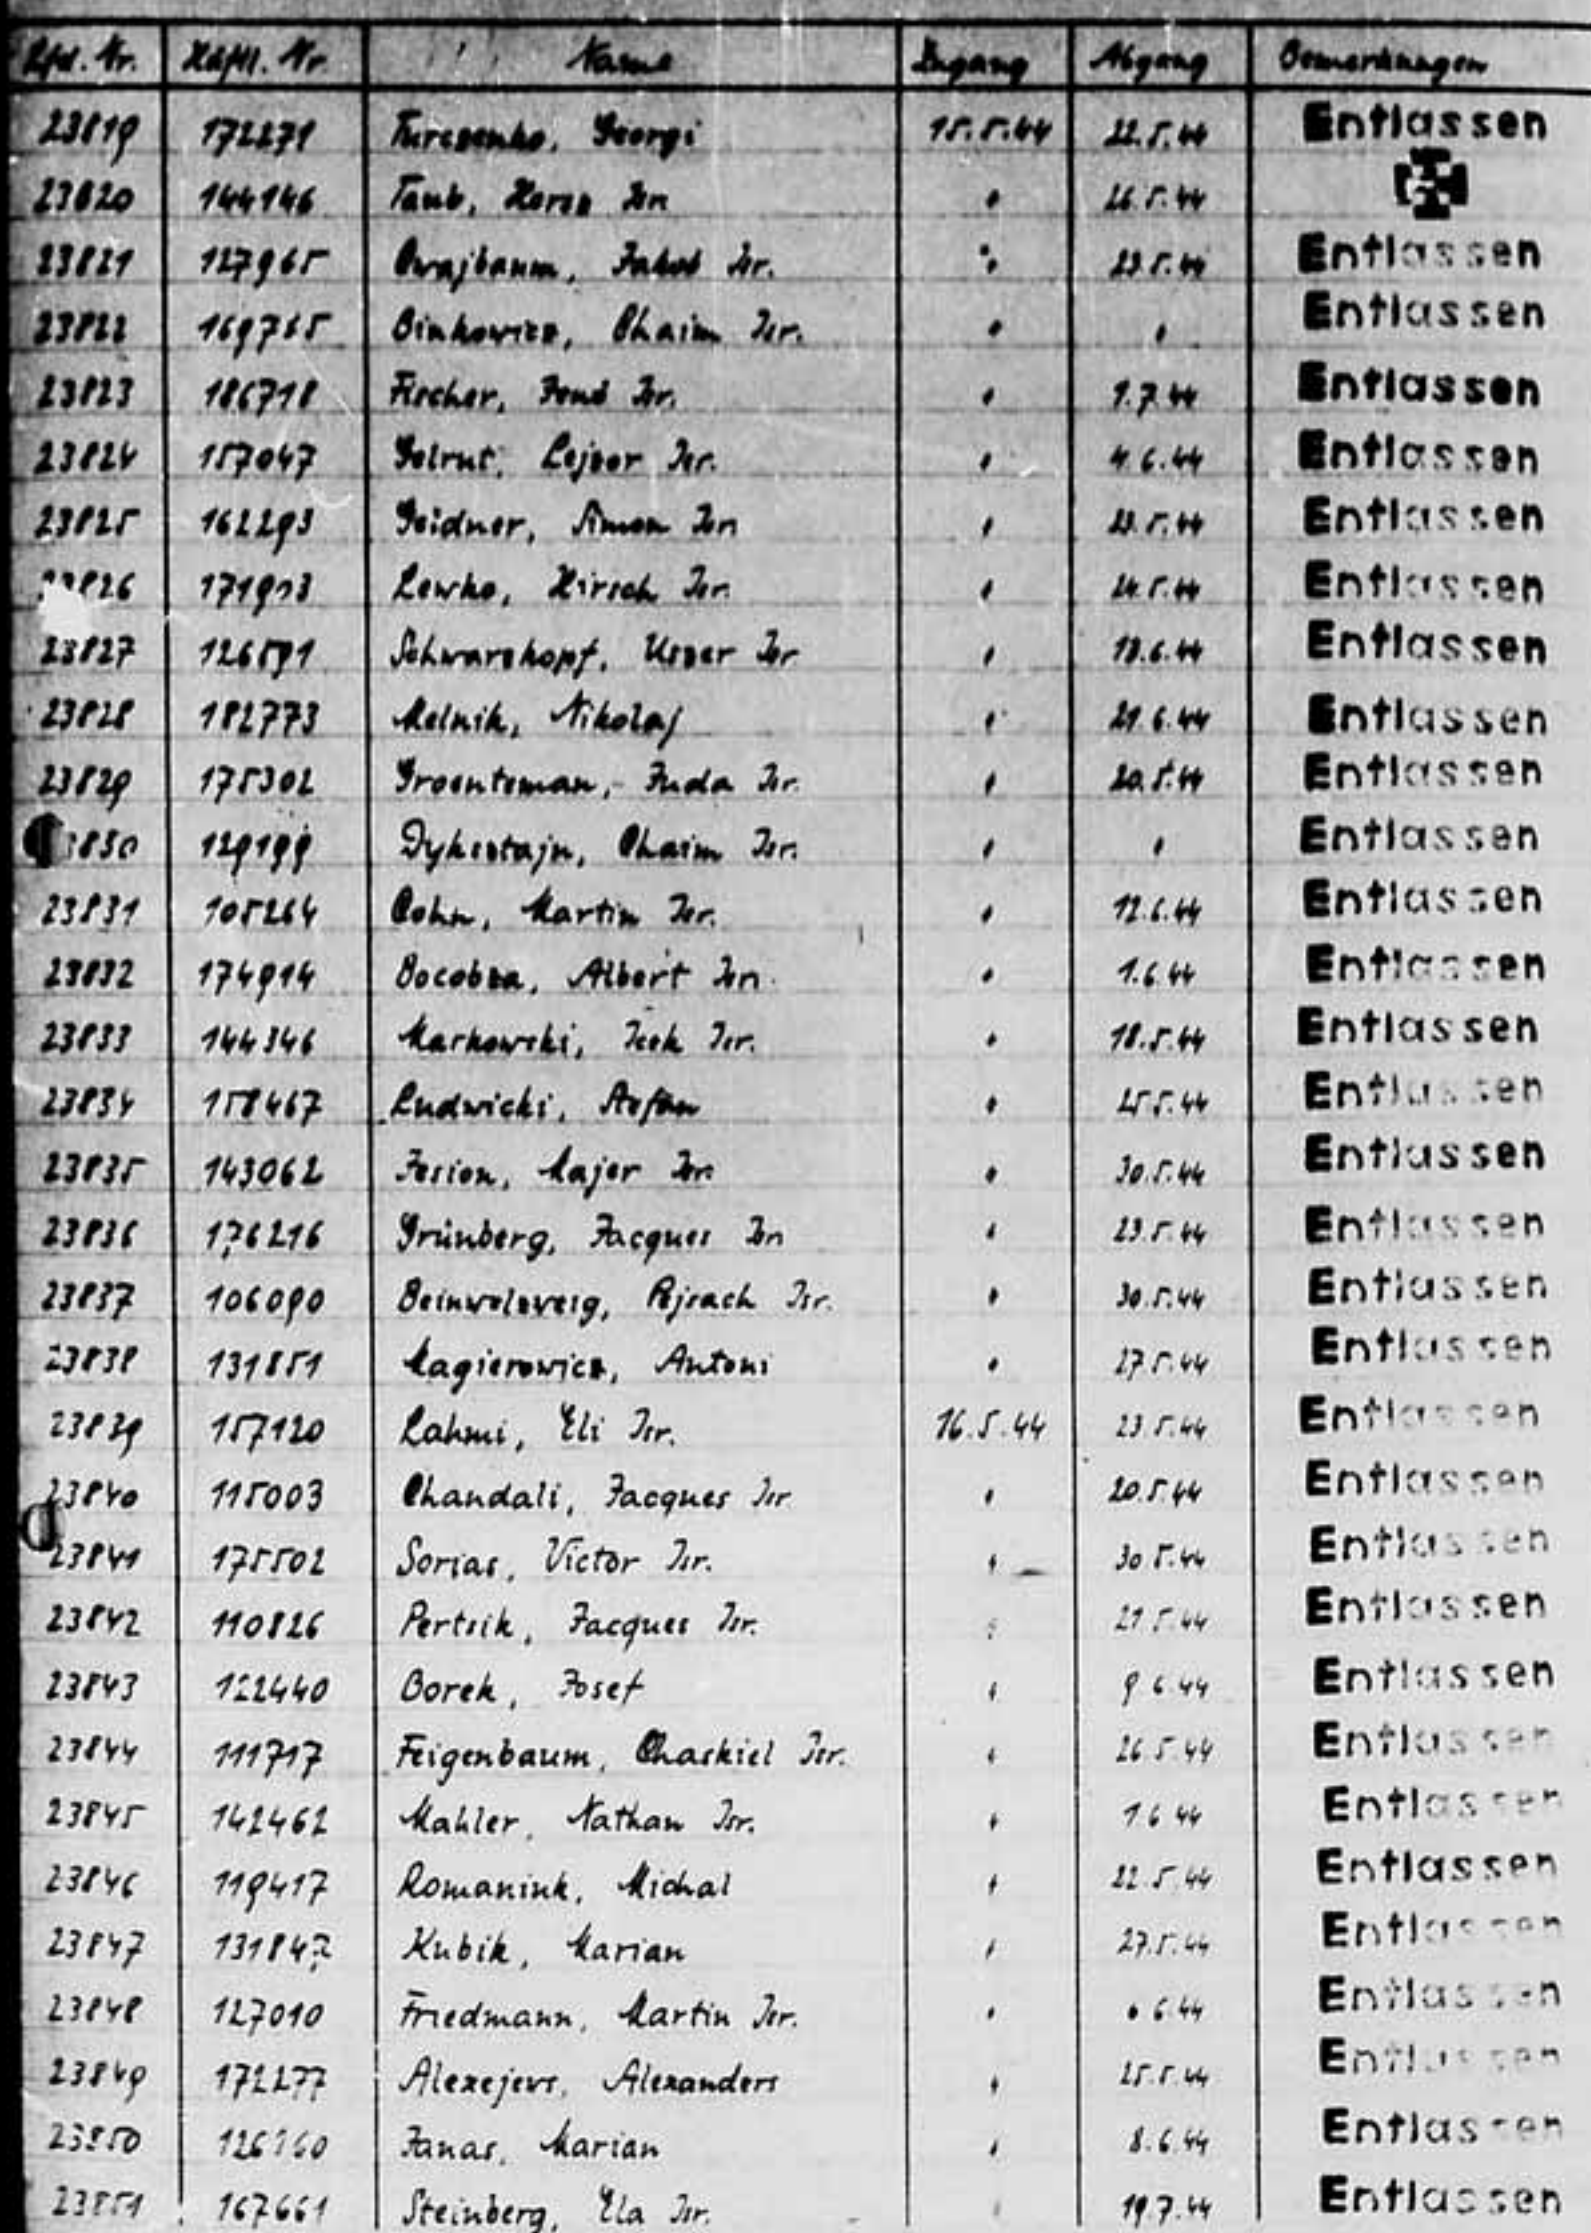 Lfd. Nr. Häftl. Nr. Name Zugang Abgang Bemerkungen
23819 172271 Georgi 15.5.44 22.5.44 Entlassen
23820 144146 Taub, Isr. " 26.5.44
23821 127965 Isr. " 23.5.44 Entlassen
23822 169765 Binkowicz, Chaim Isr. " " Entlassen
23823 186718 Fischer, Isr. " 1.7.44 Entlassen
23824 157047 Gelrut, Lejzor Isr. " 4.6.44 Entlassen
23825 162293 Geidner, Simon Isr. " 23.5.44 Entlassen
23826 171903 Lewko, Hirsch Isr. " 24.5.44 Entlassen
23827 126591 Schwarzkopf, Uszer Isr. " Entlassen
23828 182773 Melnik, Nikolaj " 21.6.44 Entlassen
23829 175302 Groenteman, Juda Isr. " 20.5.44 Entlassen
3830 129199 Dyksztajn, Chaim Isr. " " Entlassen
23831 105264 Cohn, Martin Isr. " 12.6.44 Entlassen
23832 174914 Bocobza, Albert Isr. " 1.6.44 Entlassen
23833 144346 Markowski, Icek Isr. " 18.5.44 Entlassen
23834 158467 Ludwicki, Stefan " 25.5.44 Entlassen
23835 143062 Jesion, Majer Isr. " 30.5.44 Entlassen
23836 176216 Grünberg, Jacques Isr. " 23.5.44 Entlassen
23837 106090 Beinwelzweig, Pejsach Isr. " 30.5.44 Entlassen
23838 131851 Magierowicz, Antoni " 27.5.44 Entlassen
23839 157120 Lahmi, Eli Isr. 16.5.44 23.5.44 Entlassen
23840 115003 Chandali, Jacques Isr. " 20.5.44 Entlassen
23841 175502 Sorias, Victor Isr. " 30.5.44 Entlassen
23842 110826 Pertsik, Jacques Isr. " 21.5.44 Entlassen
23843 122440 Borek, Josef " 9.6.44 Entlassen
23844 111717 Feigenbaum, Chaskiel Isr. " 26.5.44 Entlassen
23845 142462 Mahler, Nathan Isr. " 1.6.44 Entlassen
23846 119417 Romaniuk, Michal " 22.5.44 Entlassen
23847 131847 Kubik, Marian " 27.5.44 Entlassen
23848 127010 Friedmann, Martin Isr. " 6.44 Entlassen
23849 172277 Alexejevs, Alexanders " 25.5.44 Entlassen
23850 Janas, Marian " 8.6.44 Entlassen
23851 167661 Steinberg, Ela Isr. " 19.7.44 Entlassen